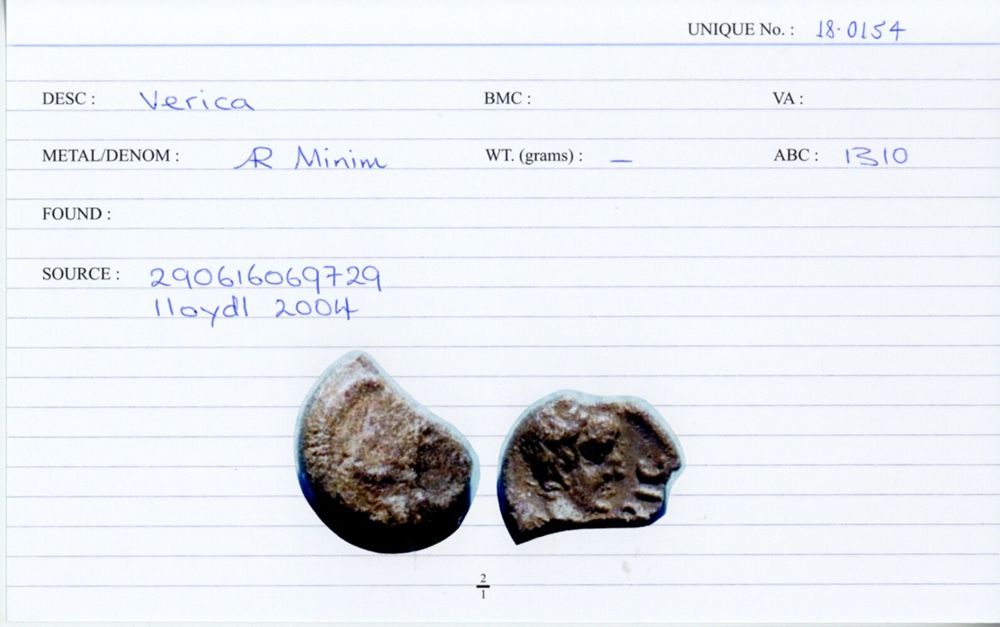 UNIQUE No. : 18·0154
DESC : Verica BMC : VA :
METAL/DENOM : AR Minim WT. (grams) : — ABC : 1310
FOUND :
SOURCE : 290616069729
lloydl 2004
2
1